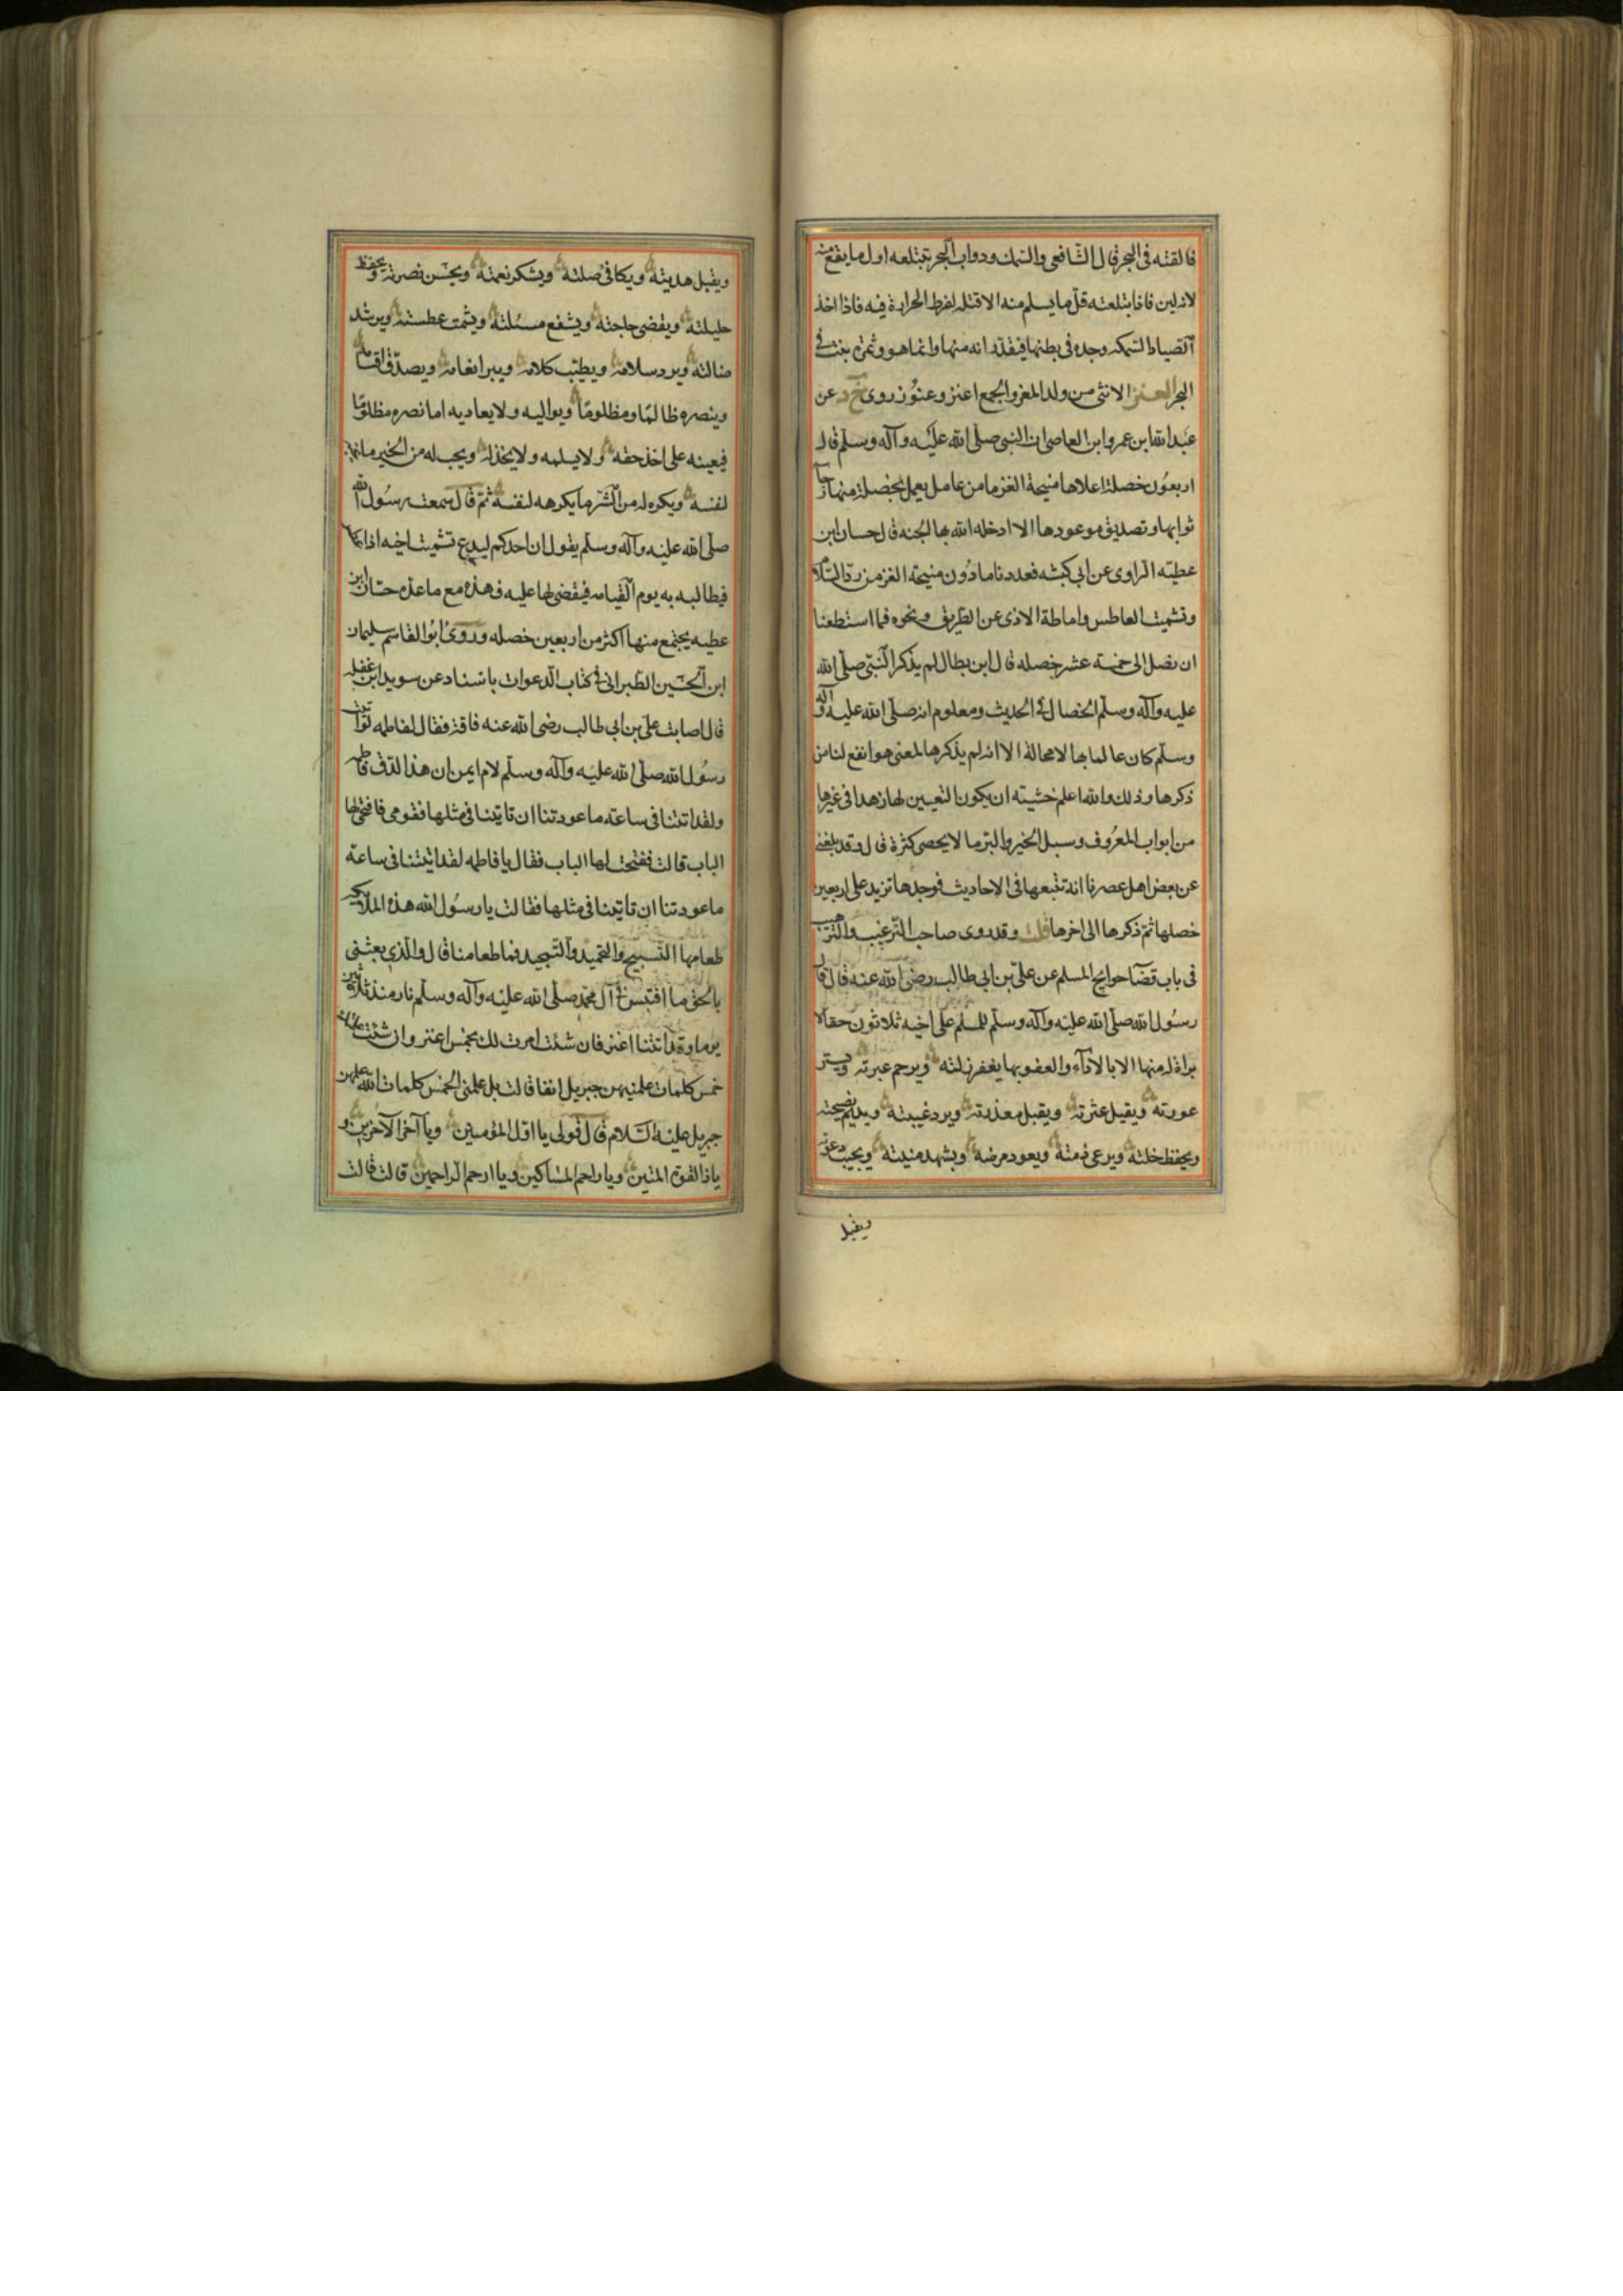 فالقته فى البحر قال الشافعى والسمك ودواب البحر تبتلعه اول ما يقع منه
لانه لين فاذا ابتلعته قل ما يسلم منه الا قتله لفرط الحرارة فيه فاذا اخذ
الصياط السمكه وجده فى بطنها فيقدر انه منها وانما هو ثمرة ينبت فى
البحر العنز الانثى من ولد المعز والجمع اعنز وعنوز روى خ د عن
عبد الله ابن عمرو ابن العاصى ان النبى صلى الله عليه وآله وسلم قال
اربعون خصلة اعلاها منيحة العنز ما من عامل يعمل بخصلة منها رجآ
ثوابها وتصديق موعودها الا ادخله الله بها الجنه قال حسان ابن
عطيته الراوى عن ابى كبشه فعددنا ما دون منيحة العنز من رد السلام
وتشميت العاطس واماطة الاذى عن الطريق ونحوه فما استطعنا
ان نصل الى خمسة عشر خصله قال ابن بطال لم يذكر النبى صلى الله
عليه وآله وسلم الخصال فى الحديث ومعلوم انه صلى الله عليه وآله
وسلم كان عالما بها لا محالة الا انه لم يذكرها لمعنى هو انفع لنا من
ذكرها وذلك والله اعلم خشيته ان يكون التعيين لها زهدا فى غيرها
من ابواب المعروف وسبل الخير والبر ما لا يحصى كثرة قال وقد بلغنى
عن بعض اهل عصرنا انه تتبعها فى الاحاديث فوجدها تزيد على اربعين
خصلها ثم ذكرها الى اخرها قلت وقد روى صاحب الترغيب والترهيب
فى باب قضآ حوايج المسلم عن على بن ابى طالب رضى الله عنه قال قال
رسول الله صلى الله عليه وآله وسلم للمسلم على اخيه ثلاثون حقا لا
براة له منها الا بالادآء والعفو بها يغفر زلته ويرحم عبرته ويستر
عورته ويقيل عثرته ويقبل معذرته ويرد غيبته ويديم نصيحته
ويحفظ خلته ويرعى ذمته ويعود مرضه ويشهد ميتته ويجيب دعوته
ويقبل
ويقبل هديته ويكافى صلته ويشكر نعمته ويحسن نصرته ويحفظ
حليلته ويقضى حاجته ويشفع مسئلته ويشمت عطسته ويرشد
ضالته ويرد سلامه ويطيب كلامه ويبر انعامه ويصدق اقسامه
وينصره ظالمًا ومظلومًا ويواليه ولا يعاديه اما نصره مظلومًا
فيعينه على اخذ حقه ولا يسلمه ولا يخذله ويحب له من الخير ما يحب
لنفسه ويكره له من الشر ما يكرهه لنفسه ثم قال سمعت رسول الله
صلى الله عليه وآله وسلم يقول ان احدكم ليدع تشميت اخيه اذا
فيطالبه به يوم القيامه فيقضى لها عليه فهذه مع ما عده حسان ابن
عطيه يجتمع منها اكثر من اربعين خصله وروى ابو القاسم سليمان
ابن الحسين الطبرانى فى كتاب الدعوات باسناد عن سويد ابن غفله
قال اصابت على بن ابى طالب رضى الله عنه فاقة فقال لفاطمه لو اتيت
رسول الله صلى الله عليه وآله وسلم لام ايمن ان هذا لدق فاطمه
ولقد اتتنا فى ساعة ما عودتنا ان تاتينا فى مثلها فقومى فافتحى لها
الباب قالت ففتحت لها الباب فقال يا فاطمه لقد اتيتنا فى ساعة
ما عودتنا ان تاتينا فى مثلها فقالت يا رسول الله هذه الملايكه
طعامها التسبيح والتحميد والتمجيد فما طعامنا قال والذى بعثنى
بالحق ما اقتبس فى آل محمد صلى الله عليه وآله وسلم نار منذ ثلاثين
يوما وقد اتتنا اعنز فان شئت امرت لك بخمس اعنز وان شئت علمتك
خمس كلمات علمنيهن جبريل انفا قالت بل علمنى الخمس كلمات التى علمهن
جبريل عليه السلام قال قولى يا اول المؤمنين ويا آخر الآخرين و
يا ذا القوة المتين ويا راحم المساكين ويا ارحم الراحمين قالت قالت